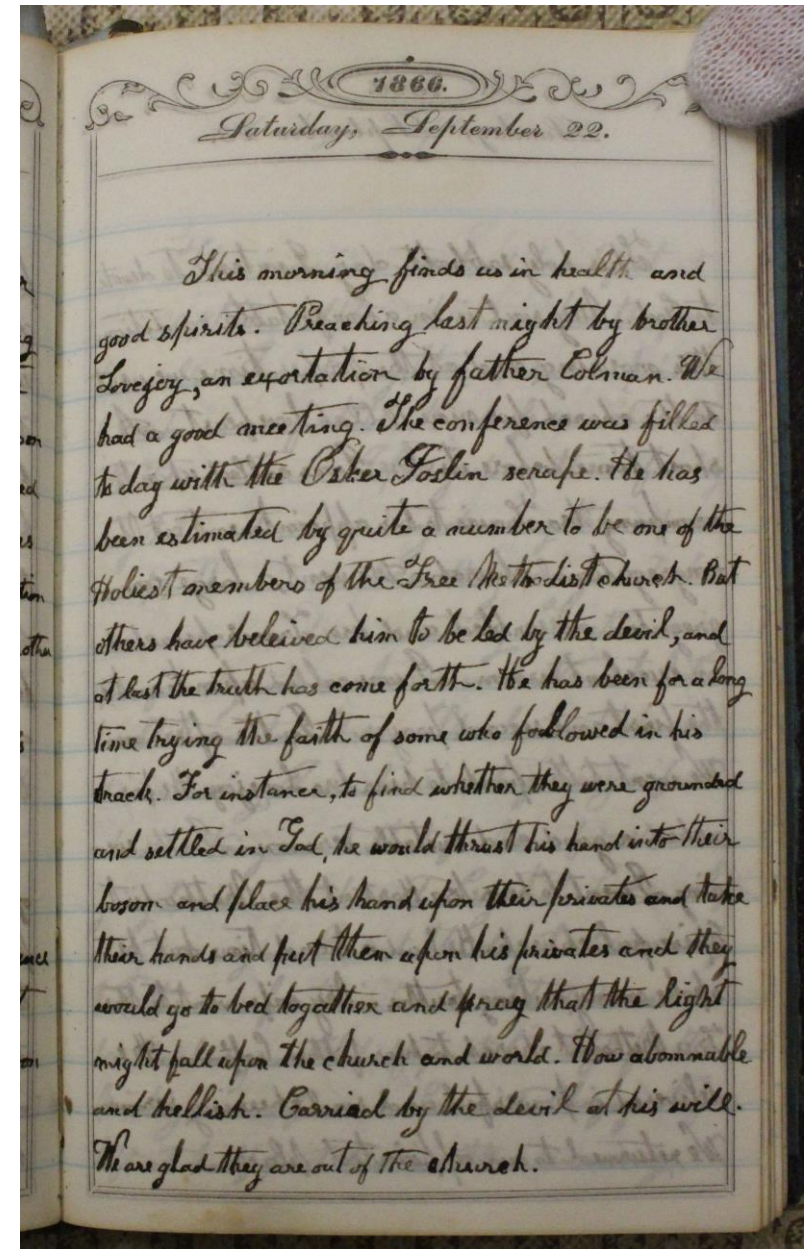 1866.
Saturday, September 22.
This morning finds us in health and
good spirits. Preaching last night by brother
Lovejoy, an exortation by father Colman. We
had a good meeting. The conference was filled
to day with the Osker Joslin scrape. He has
been estimated by quite a number to be one of the
Holiest members of the Free Methodist church. But
others have beleived him to be led by the devil, and
at last the truth has come forth. He has been for a long
time trying the faith of some who followed in his
track. For instance, to find whether they were grounded
and settled in God, he would thrust his hand into their
bosom and place his hand upon their privates and take
their hands and put them upon his privates and they
would go to bed togather and pray that the light
might fall upon the church and world. How abomnable
and hellish. Carried by the devil at his will.
We are glad they are out of the church.